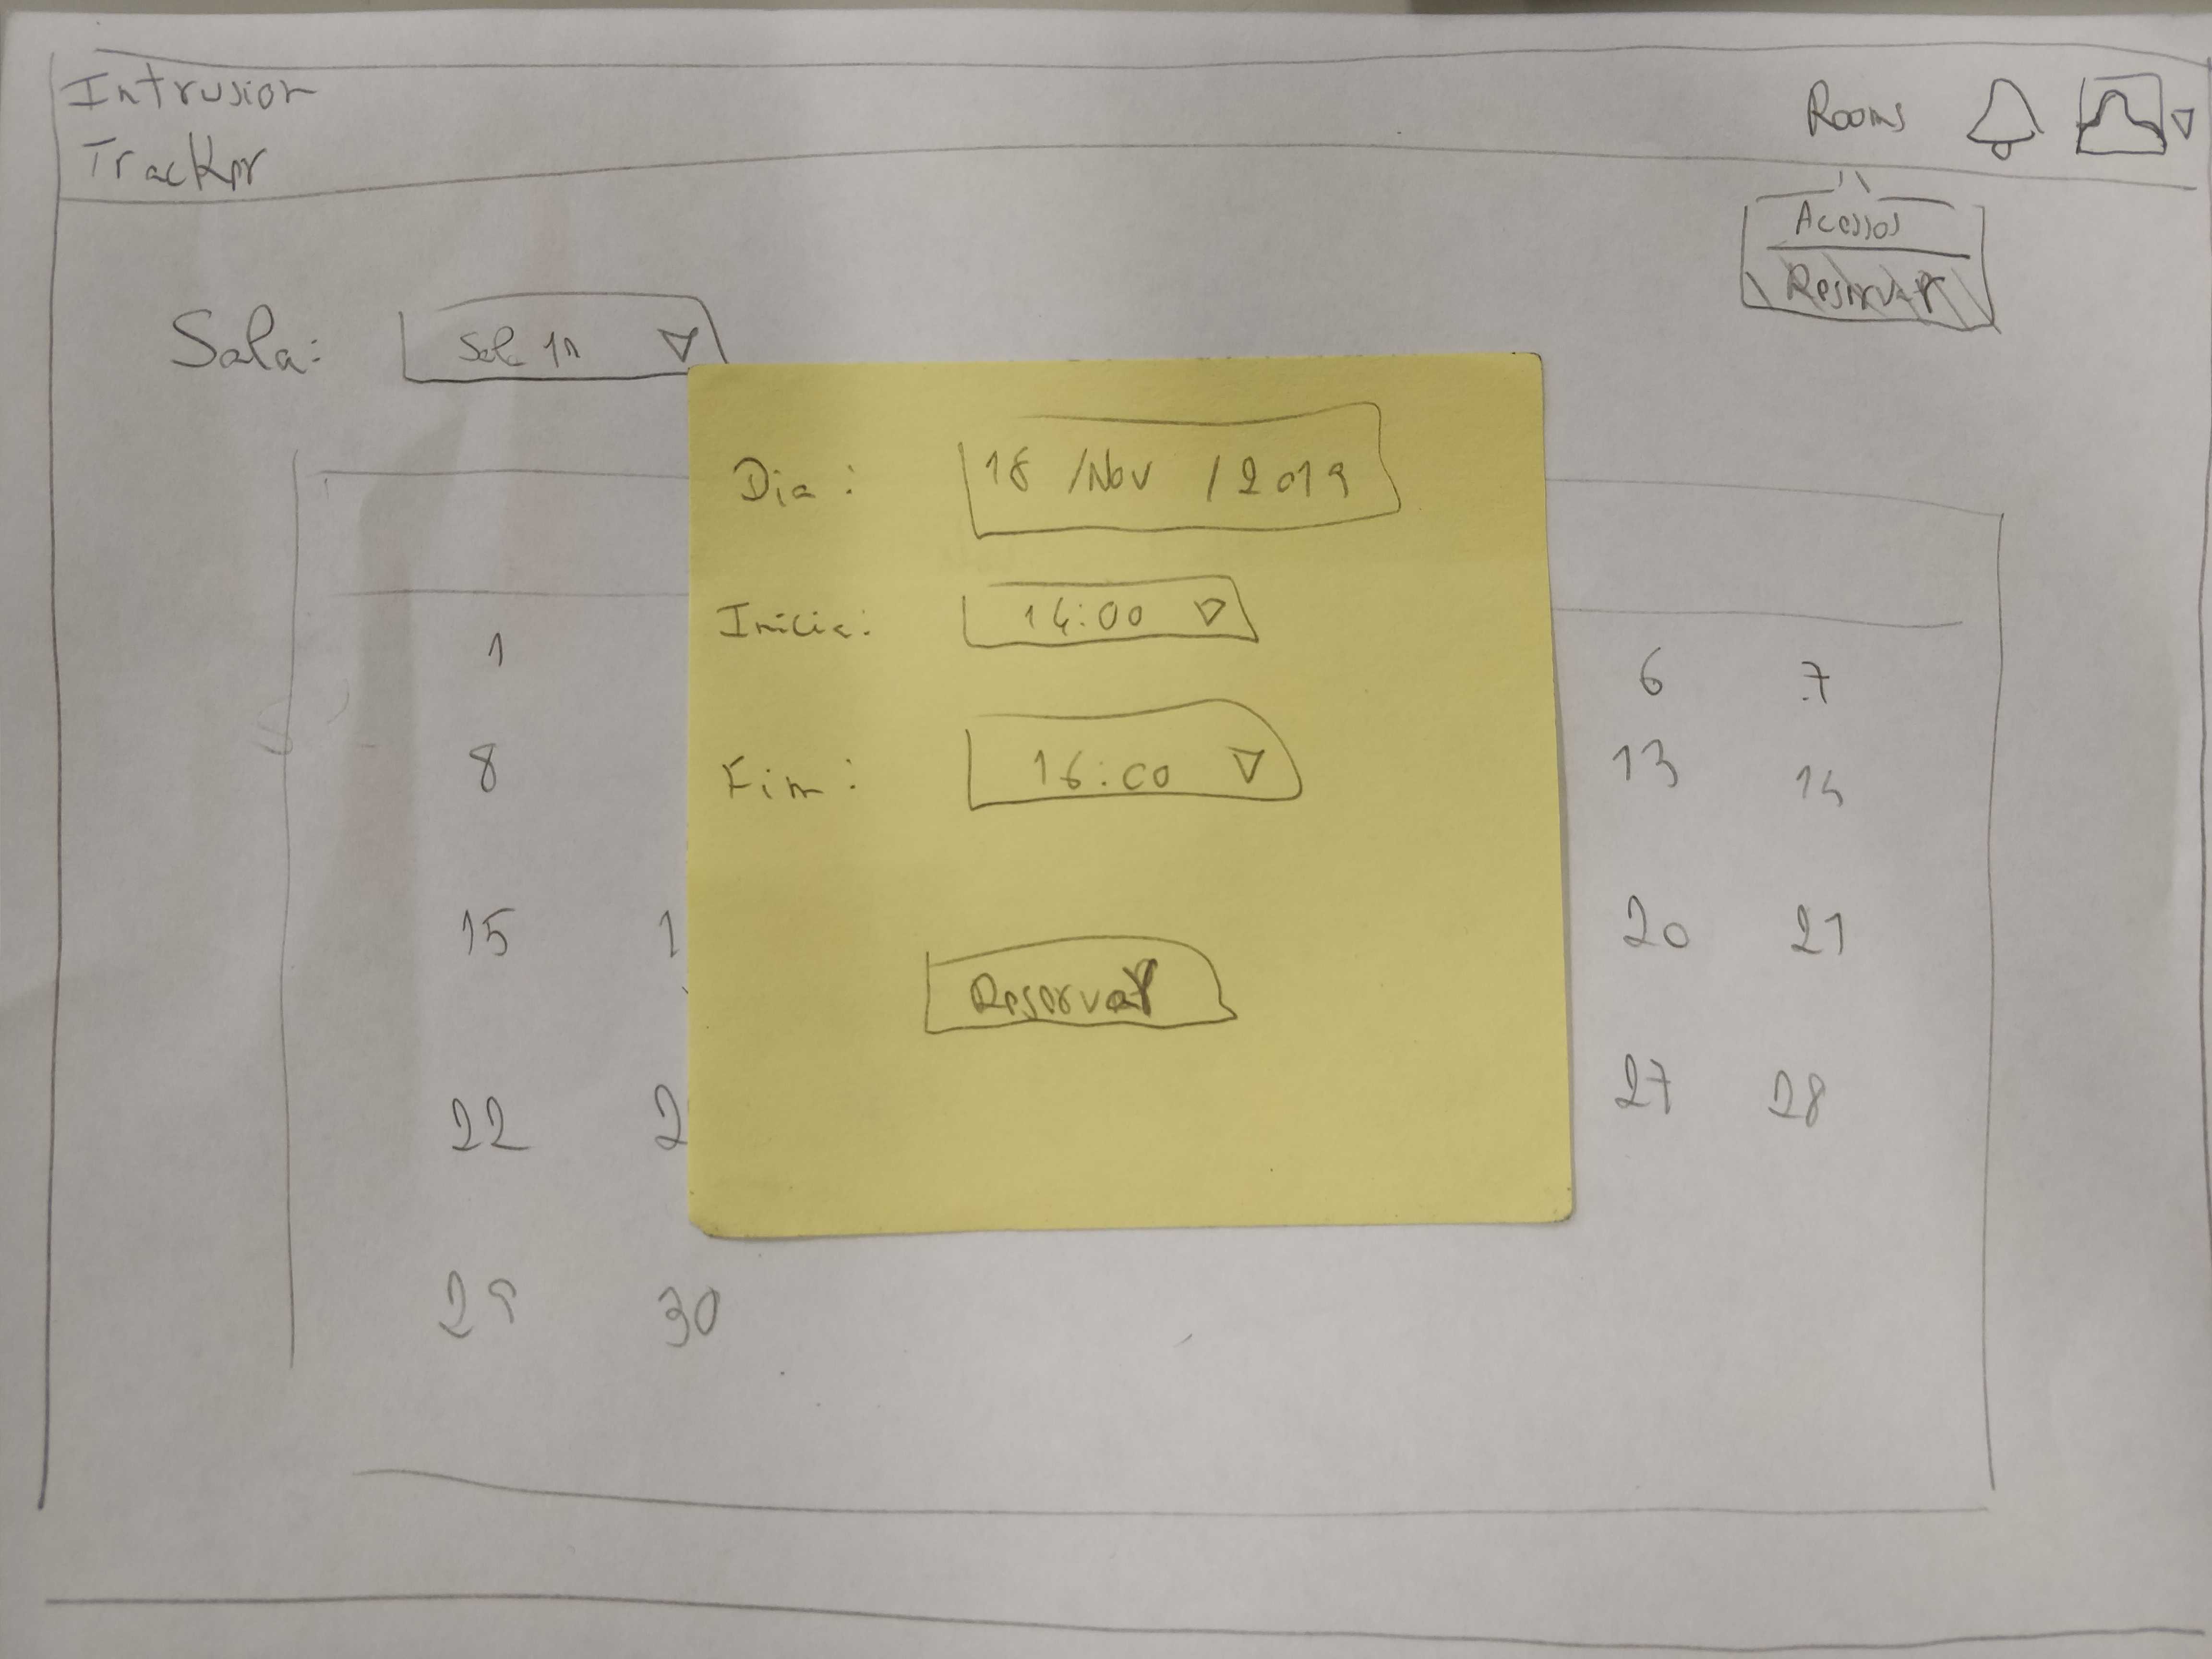 Intrusion
Tracker
Rooms
Acessos
Reservar
Sala:
Dia: 18 /Nov / 2019
Inicia: 14:00
Fim: 16:00
Reservar
1 6 7
8 13 14
15 1 20 21
22 2 27 28
29 30